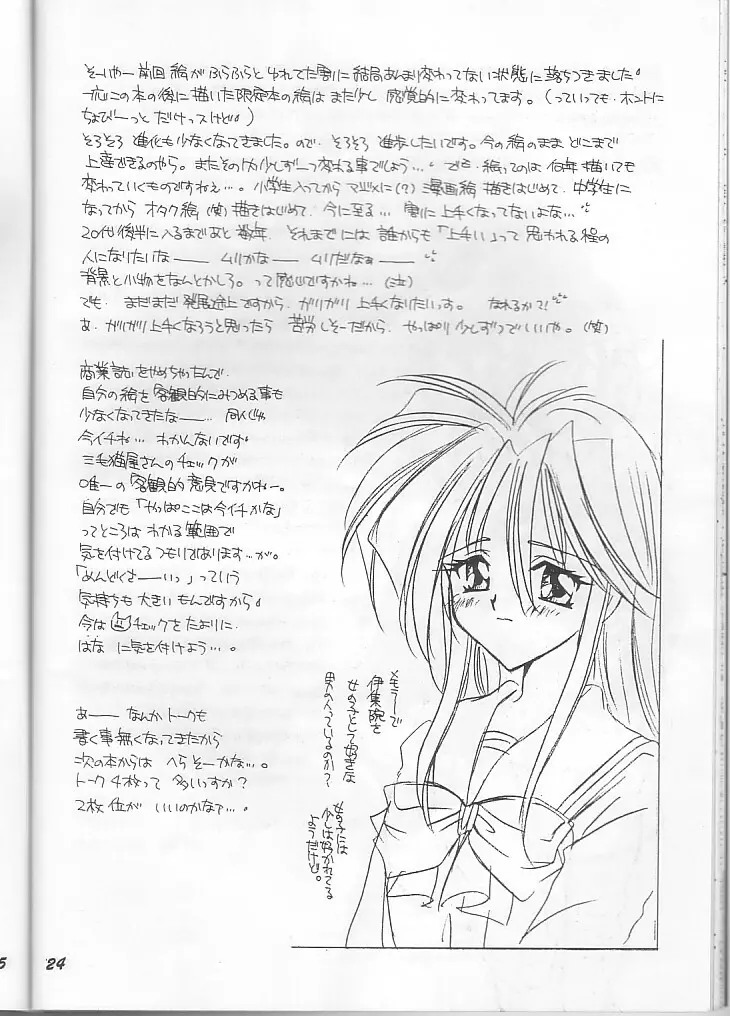 そーいやー前回絵がふらふらとゆれてた割に結局あんまり変わってない状態に落ちつきました。
一応この本の後に描いた限定本の絵はまた少し感覚的に変わってます。(っていっても、ホントに
ちょびーっとだけっスけど。)
そろそろ進化も少なくなってきました。ので、そろそろ進歩したいです。今の絵のままどこまで
上達できるのやら。またその内少しずーつ変わる事でしょう…。でも、絵ってのは何年描いても
変わっていくものですねぇ…。小学生入ってからマジメに(?)漫画絵描きはじめて、中学生に
なってからオタク絵(笑)描きはじめて、今に至る…割に上手くなってないよな…。
20代後半に入るまであと数年、それまでには誰からも「上手い」って思われる程の
人になりたいなーー ムリかなーー ムリだなぁーー
背景と小物をなんとかしろ。って感じですかね…(泣)
でも、まだまだ発展途上ですから、ガリガリ上手くなりたいっす。なれるか?!
あ、ガリガリ上手くなろうと思ったら苦労しそーだから、やっぱり少しずつでいいや。(笑)
商業誌をやめちゃったんで、
自分の絵を客観的にみつめる事も
少なくなってきたなーー…同人じゃ
今イチね…わかんないです。
三毛猫屋さんのチェックが
唯一の客観的意見ですかねー。
自分でも「やっぱここは今イチかな」
ってところはわかる範囲で
気を付けてるつもりではあります…が。
「めんどくさーーいっ」っていう
気持ちも大きいもんですから。
今はチェックをたよりに
はな に気を付けよう…。
あーー なんかトークも
書く事無くなってきたから
次の本からはへらそーかな…。
トーク4枚って多いっすか?
2枚位がいいのかなァ…。
メモラーで
伊集院を
女の子として好きな
男の人っているのか?
女の子には
少しは好かれてる
ようだけど。
5
24